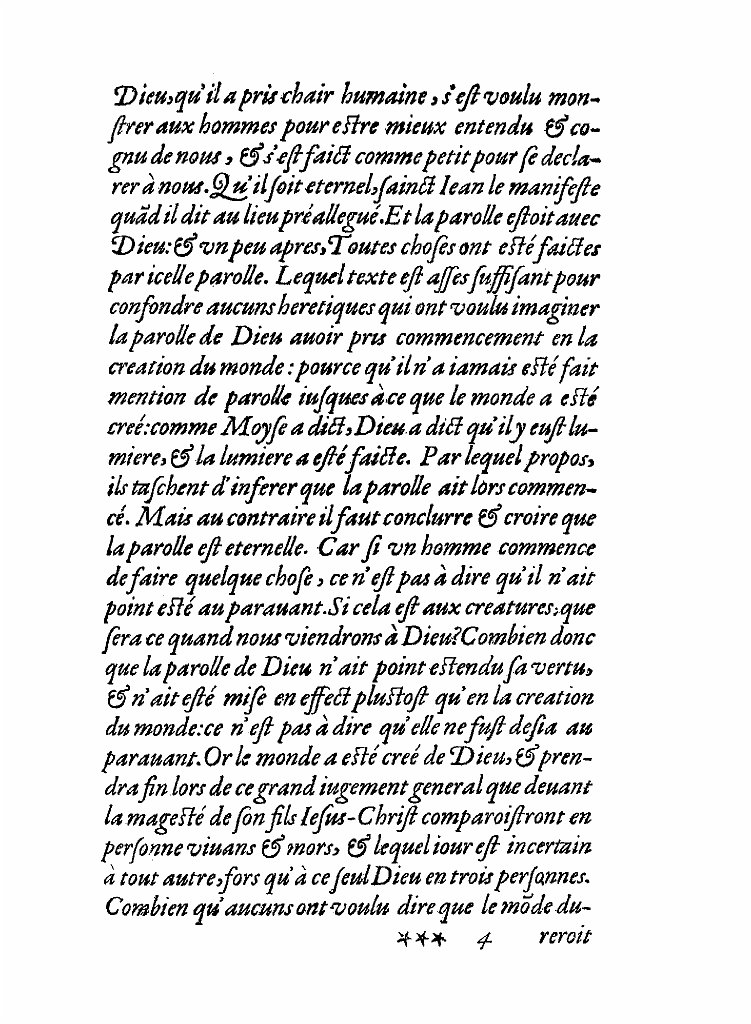 Dieu, qu'il a pris chair humaine, s'eſt voulu mon-
ſtrer aux hommes pour eſtre mieux entendu & co-
gnu de nous, & s'eſt faict comme petit pour ſe decla-
rer à nous. Qu'il ſoit eternel, ſainct Iean le manifeſte
quãd il dit au lieu préallegué. Et la parolle eſtoit auec
Dieu: & vn peu apres, Toutes choſes ont eſté faictes
par icelle parolle. Lequel texte eſt aſſes ſuffiſant pour
confondre aucuns heretiques qui ont voulu imaginer
la parolle de Dieu auoir pris commencement en la
creation du monde: pource qu'il n'a iamais eſté fait
mention de parolle iuſques à ce que le monde a eſté
creé: comme Moyſe a dict, Dieu a dict qu'il y euſt lu-
miere, & la lumiere a eſté faicte. Par lequel propos,
ils taſchent d'inferer que la parolle ait lors commen-
cé. Mais au contraire il faut conclurre & croire que
la parolle eſt eternelle. Car ſi vn homme commence
de faire quelque choſe, ce n'eſt pas à dire qu'il n'ait
point eſté au parauant. Si cela eſt aux creatures, que
ſera ce quand nous viendrons à Dieu? Combien donc
que la parolle de Dieu n'ait point eſtendu ſa vertu,
& n'ait eſté miſe en effect pluſtoſt qu'en la creation
du monde: ce n'eſt pas à dire qu'elle ne fuſt deſia au
parauant. Or le monde a eſté creé de Dieu, & pren-
dra fin lors de ce grand iugement general que deuant
la mageſté de ſon fils Ieſus-Chriſt comparoiſtront en
perſonne viuans & mors, & lequel iour eſt incertain
à tout autre, fors qu'à ce ſeul Dieu en trois perſonnes.
Combien qu'aucuns ont voulu dire que le mõde du-
*** 4 reroit